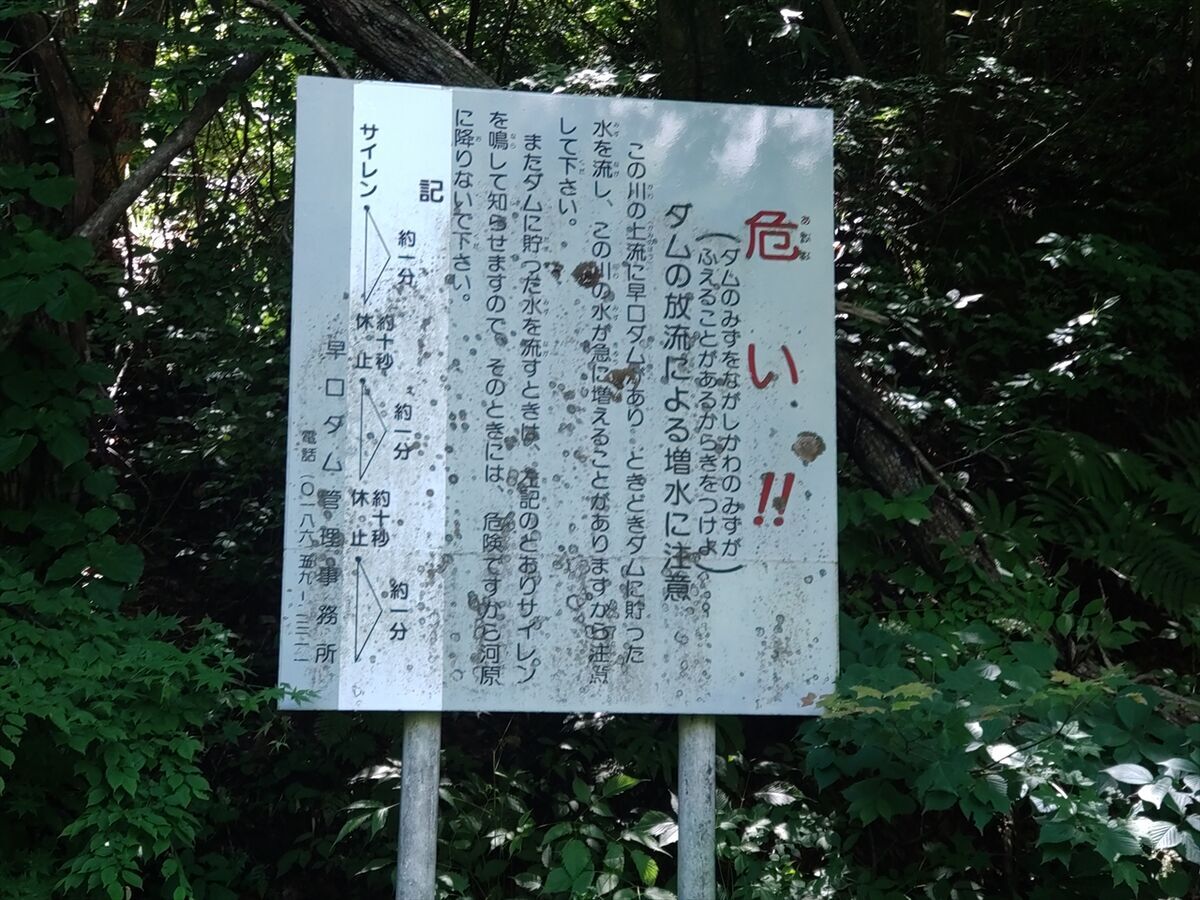 危い!!
あぶな
(ダムのみずをながしかわのみずが
ふえることがあるからきをつけよ)
ダムの放流による増水に注意
この川の上流に早口ダムがあり ときどきダムに貯った
水を流し、この川の水が急に増えることがありますから注意
して下さい。
またダムに貯った水を流すときは、左記のとおりサイレン
を鳴して知らせますので、そのときには、危険ですから河原
に降りないで下さい。
記
サイレン 約一分 約十秒休止 約一分 約十秒休止 約一分
早口ダム管理事務所